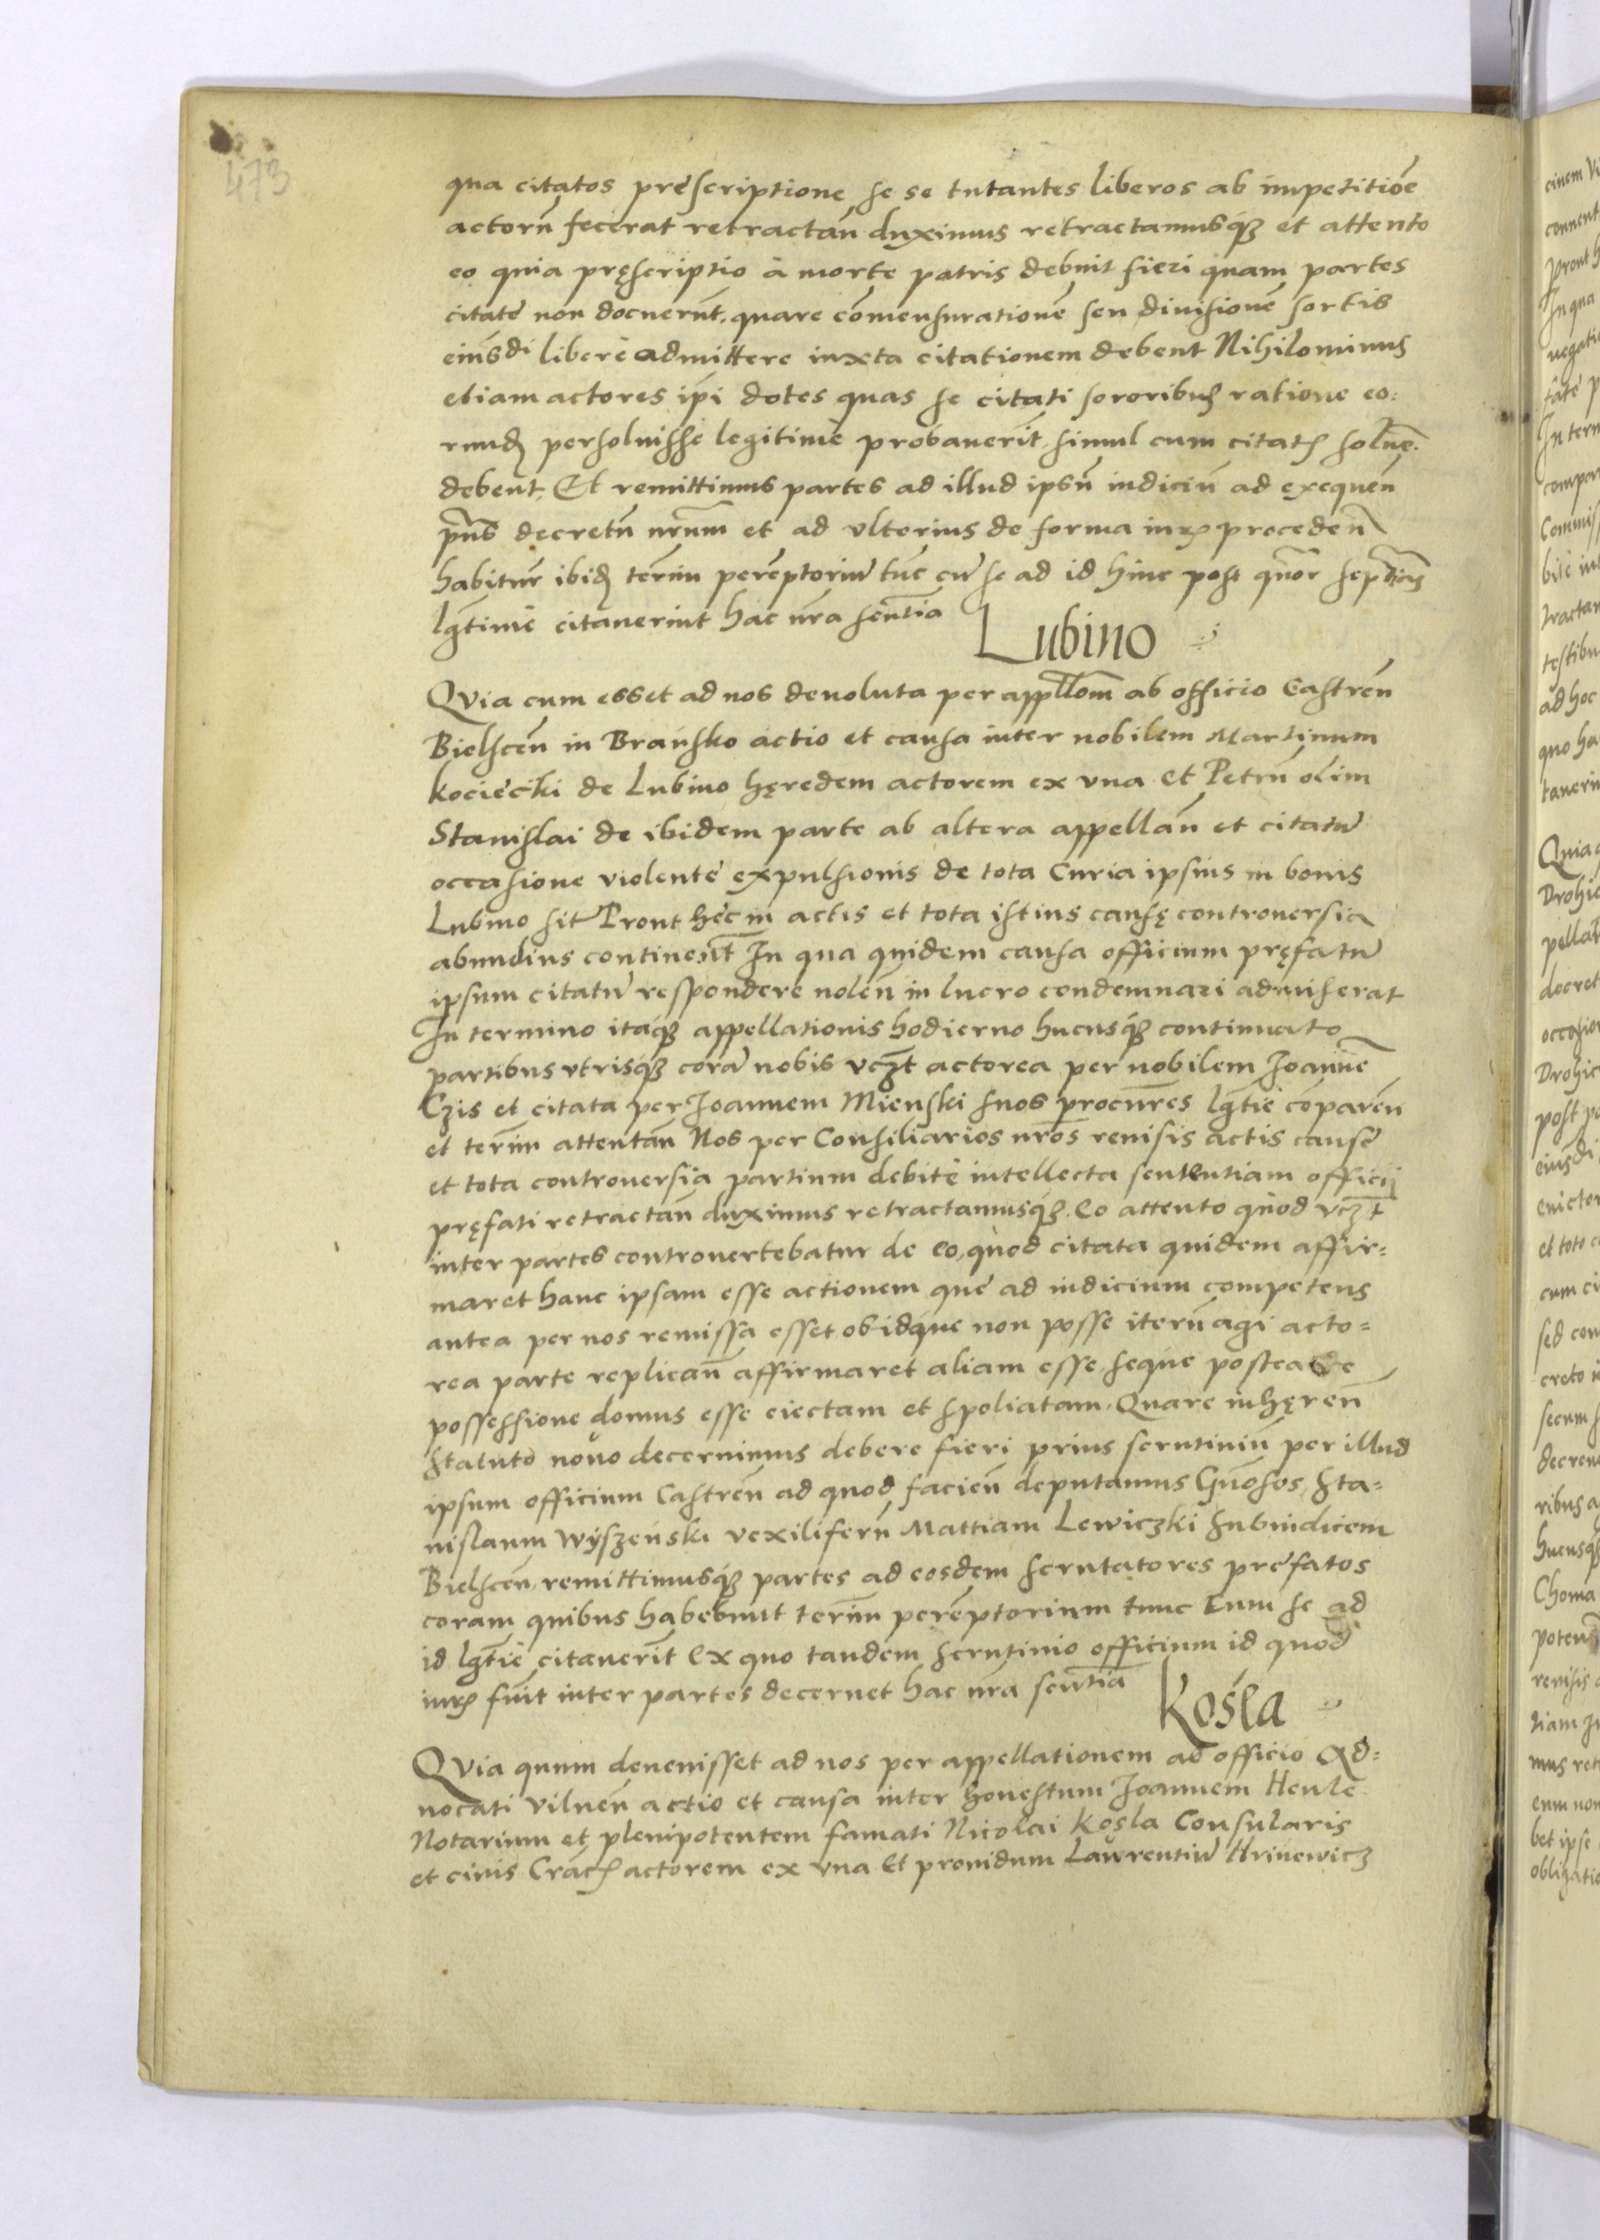 473
qua citatos præscriptione se se tutantes liberos ab impetitiōe
actorū fecerat retractan̄ duximus retractamusq et attento
eo quia pręscriptio à morte patris debuit fieri quam partes
citatæ non docuerūt, quare cōmensurationē seu diuisionē sortis
eiusdi liberè admittere iuxta citationem debent Nihilominus
etiam actores ip̄i dotes quas se citati sororibus ratione eo:
rund persoluisse legitimè probauerīt, simul cum citatis soluere
debent, Et remittimus partes ad illud ipsū iudiciū ad exequen̄
p̄ns decretū nr̄um et ad vlterius de forma iuris proceden̄
habitur ibid terīm perēptoriū tūc cū se ad id hinc post quor septias
lḡtimè citauerint hac nr̄a sentīa
Lubino
Qvia cum esset ad nos deuoluta per appllom̄ ab officio Castren̄
Bielscen̄ in Brańsko actio et causa inter nobilem Martinum
Kociećki de Lubino hęredem actorem ex vna et Petrū olim
Stanislai de ibidem parte ab altera appellan̄ et citatū
occasione violentæ expulsionis de tota Curia ipsius in bonis
Lubino sit Prout hæc in actis et tota istius causę controuersia
abundius continent̄ In qua quidem causa officium pręfatū
ipsum citatū respondere nolen̄ in lucro condemnari admiserat
In termino itaq appellationis hodierno hucusq continuato
partibus vtrisq corā nobis vczt actorea per nobilem Ioannē
Czis et citata per Ioannem Mienski suos procures lḡtiè cōparen̄
et terīm attentan̄ Nos per Consiliarios nr̄os reuisis actis causæ
et tota controuersia partium debitè intellecta sententiam officij
pręfati retractan̄ duximus retractamusq. Eo attento quòd vczt
inter partes controuertebatur de eo, quòd citata quidem affir=
maret hanc ipsam esse actionem quæ ad iudicium competens
antea per nos remissa esset obidque non posse iterū agi acto=
rea parte replican̄ affirmaret aliam esse seque postea de
possessione domus esse eiectam et spoliatam, Quare inhęren̄
statuto nouo decernimus debere fieri prius scrutiniū per illud
ipsum officium Castren̄ ad quod facien̄ deputamus Gn̄osos, Sta=
nislaum Wyszeński vexiliferū Mattiam Lewiczki Subiudicem
Bielscen̄, remittimusq partes ad eosdem scrutatores præfatos
coram quibus habebunt terīm perēptorium tunc Eum se ad
id lḡtiè citauerīt Ex quo tandem scrutinio officium id quod
iuris fūit inter partes decernet hac nr̄a sentīa
Kośla
Qvia quum deuenisset ad nos per appellationem ab officio Ad=
uocati Vilnen̄ actio et causa inter honestum Ioannem Heule
Notarium et plenipotentem famati Nicolai Kośla Consularis
et ciuis Crac actorem ex vna Et prouidum Lawrentiū Hrinewicz